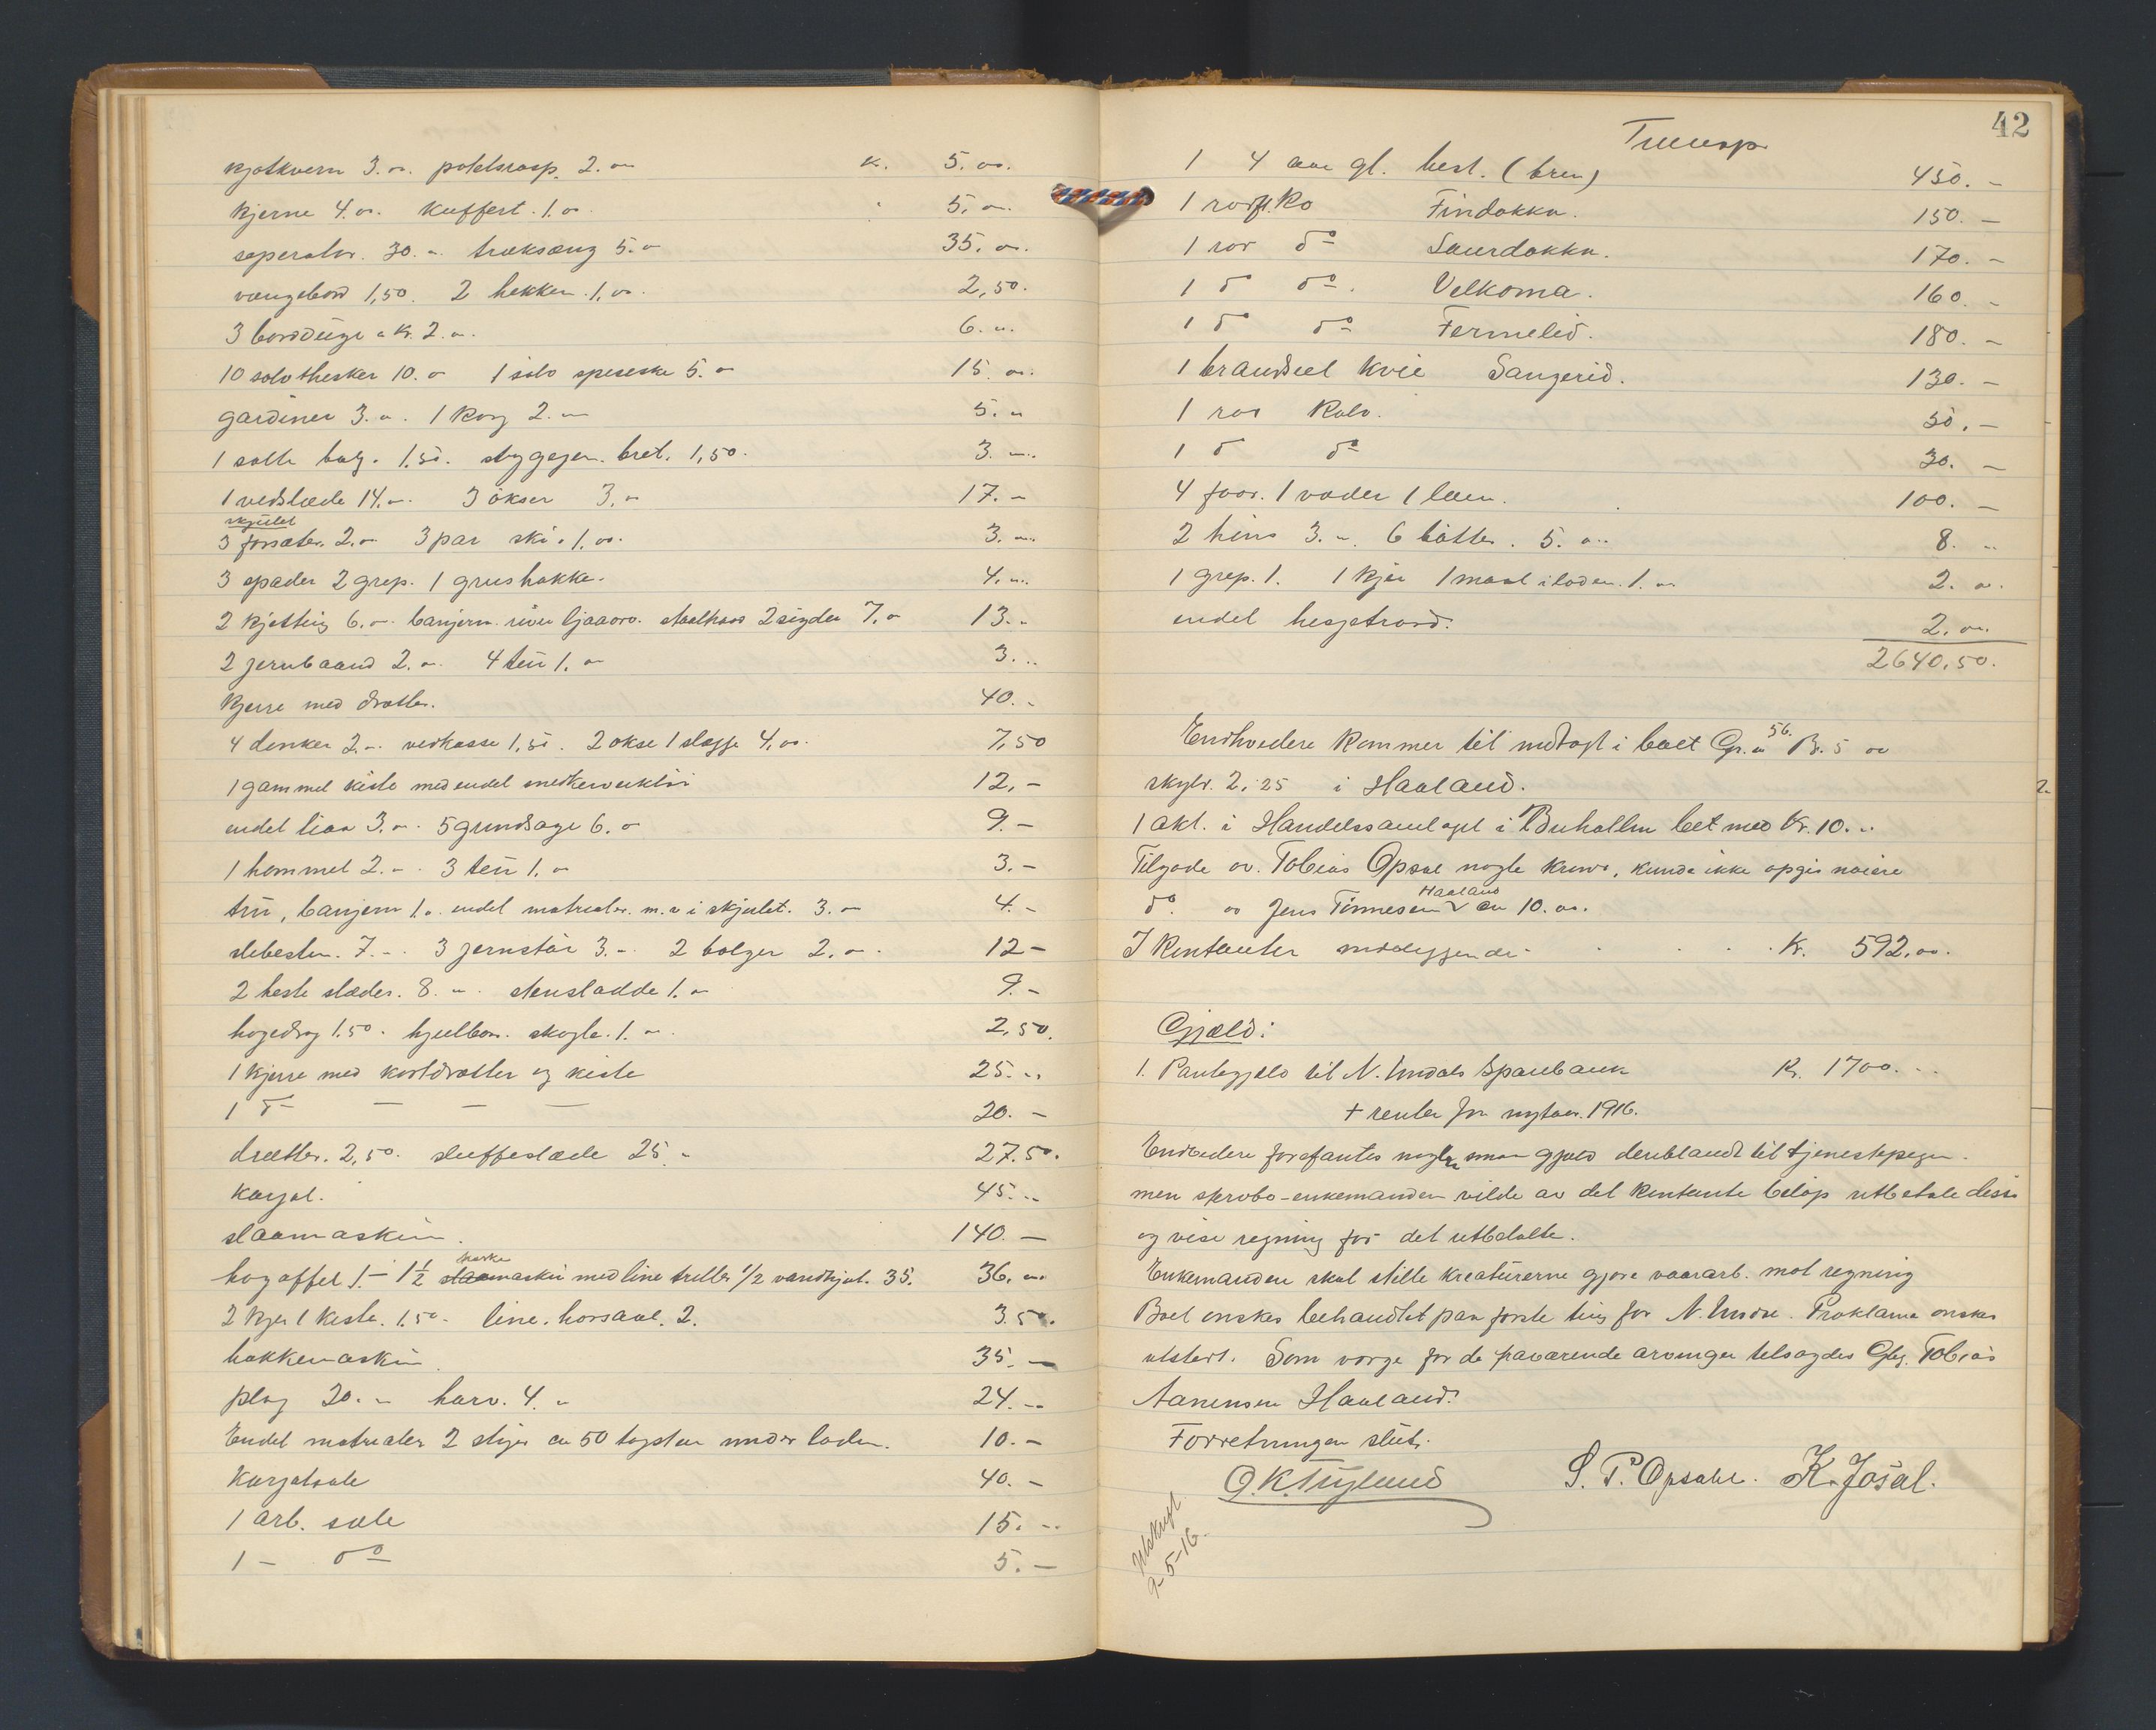 kjøtkvern 3.00. potetsrasp. 2.00 K. 5.00.
kjerne 4.00. kuffert. 1.00. " 5.00.
seperator. 30.00. træksæng 5.00 35.00.
vængebord 1,50. 2 hekker. 1.00. 2,50.
3 borddüge a Kr. 2.00. 6.00.
10 sølv thesker 10.00 1 sølv speseske 5.00 15.00.
gardiner 3.00. 1 korg 2.00 5.00
1 salte balg. 1.50. bret. 1,50. 3.00.
1 vedslæde 14.00. 3 økser 3.00 17.-
skjület
3 2.00 3 par ski. 1.00. 3.00.
3 spader 2 grep. 1 grushakke. 4.00.
2 kjetting 6.00. banjern. river ljaaorv. 2 sigder 7.00 13.-
2 jernbaand 2.00. 4 1.00 3...
Kjerre med drætter. 40.-
4 dunker 2.00. vedkasse 1,50. 2 økse 1 slægge 4.00. 7,50
1 gammel kiste med endel snedkerverktøi 12,-
endel liaa 3.00. 5 grindsage 6.00 9.-
1 hommel 2.00. 3 1.00 3.-
banjern 1.00. endel matrealer. m. v i skjulet. 3.00 4.-
slebesten. 7.-. 3 jernstör 3.-. 2 bolger 2.00. 12-
2 heste slæder. 8.00. stensladde 1.00 9.-
høgedrog 1.50. hjulbor. skogle. 1.00. 2,50.
1 kjerre med kortdrætter og kiste 25.-
1 do — — — 20.-
drætter. 2,50. sluffeslæde 25.- 27.50.
Karjol. 45.-
slaamaskin. 140.-
harke
høgaffel 1.- 1 1/2 slaamaskin med line triller 1/2 vandhjul. 35. 36.00.
2 kjer 1 kiste. 1.50. line. horsaal. 2. 3.50.
hakkemaskin. 35.-
plog 20.- harv. 4.- 24.-
Endel matrealer 2 stiger ca 50 tagsten under loden. 10.-
Karjolsæle 40.-
1 arb. sæle 15.-
1 — do 5.-
42
Transp.
1 4 aar gl. hest. (brun) 450.-
1 rødfl. Ko Findokka. 150.-
1 rød do Saurdokka. 170.-
1 do do. Velkoma. 160.-
1 do do Fermelid. 180.-
1 brandset kvie Sangerid. 130.-
1 rød kalv. 50.-
1 do do 30.-
4 faar. 1 væder 1 lam. 100.-
2 høns 3.- 6 bøtter. 5.00. 8.-
1 grep. 1. 1 kjer 1 maal i loden. 1.00 2.00.
endel hesjetraad. 2.00.
2640,50.
Endvidere kommer til indtægt i boet Gr. n 56. B. 5 av
skyld. 2,25 i Haaland.
1 akt. i Handelssamlaget i Buhollm bet med Kr. 10.-
Tilgode av. Tobias Opsal nogle kroner, kunde ikke opgis nøiere
Haaland
do. av Jens Tønnesen ca 10.00.
I kontanter indelggende . . . . Kr. 592.00.
Gjæld:
1. Pantegjæld til N. Undals Sparebank Kr. 1700.-
+ renter fra nytaar. 1916.
Endvidere forefantes nogle smaa gjæld deriblandt til tjenestepigen.
men skrobo-enkemanden vilde av det kontante beløp utbetale disse
og vise regning for det utbetalte.
Enkemanden skal stille kreatürerne gjøre vaararb. mot regning
Boet ønskes behandlet paa første ting for N. Undal. Proklama ønskes
utsted. Som værge for de fraværende arvinger tilsagdes Gbr. Tobias
Aanensen Haaland.
Forretningen slüt.
O. K. Tryland S. P. Opsahl. K. Josdal.
Utskrift
2 5-16.